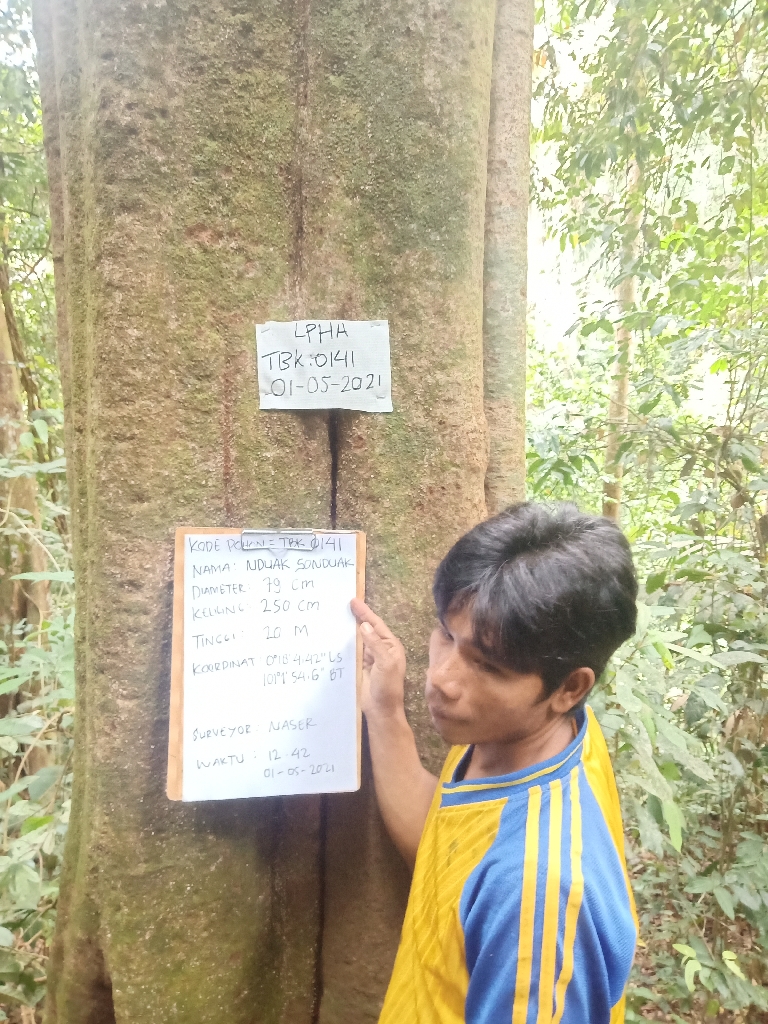 LPHA
TBK:0141
01-05-2021
KODE POHON = TBK 0141
NAMA: NDUAK SONDUAK
DIAMETER: 79 cm
KELILING: 250 cm
TINGGI: 20 M
KOORDINAT 0°18'4.42" LS
101°1'54.6" BT
SURVEYOR: NASER
WAKTU : 12.42
01-05-2021